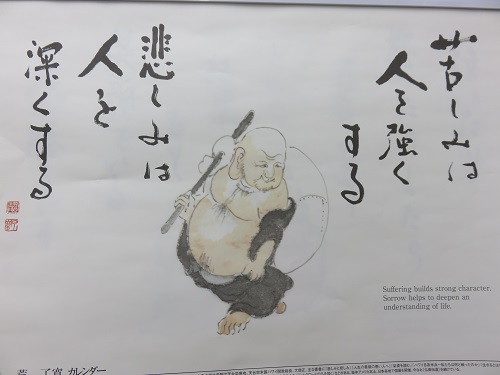 苦しみは
人を強く
する
悲しみは
人を
深くする
Suffering builds strong character.
Sorrow helps to deepen an
understanding of life.
カレンダー